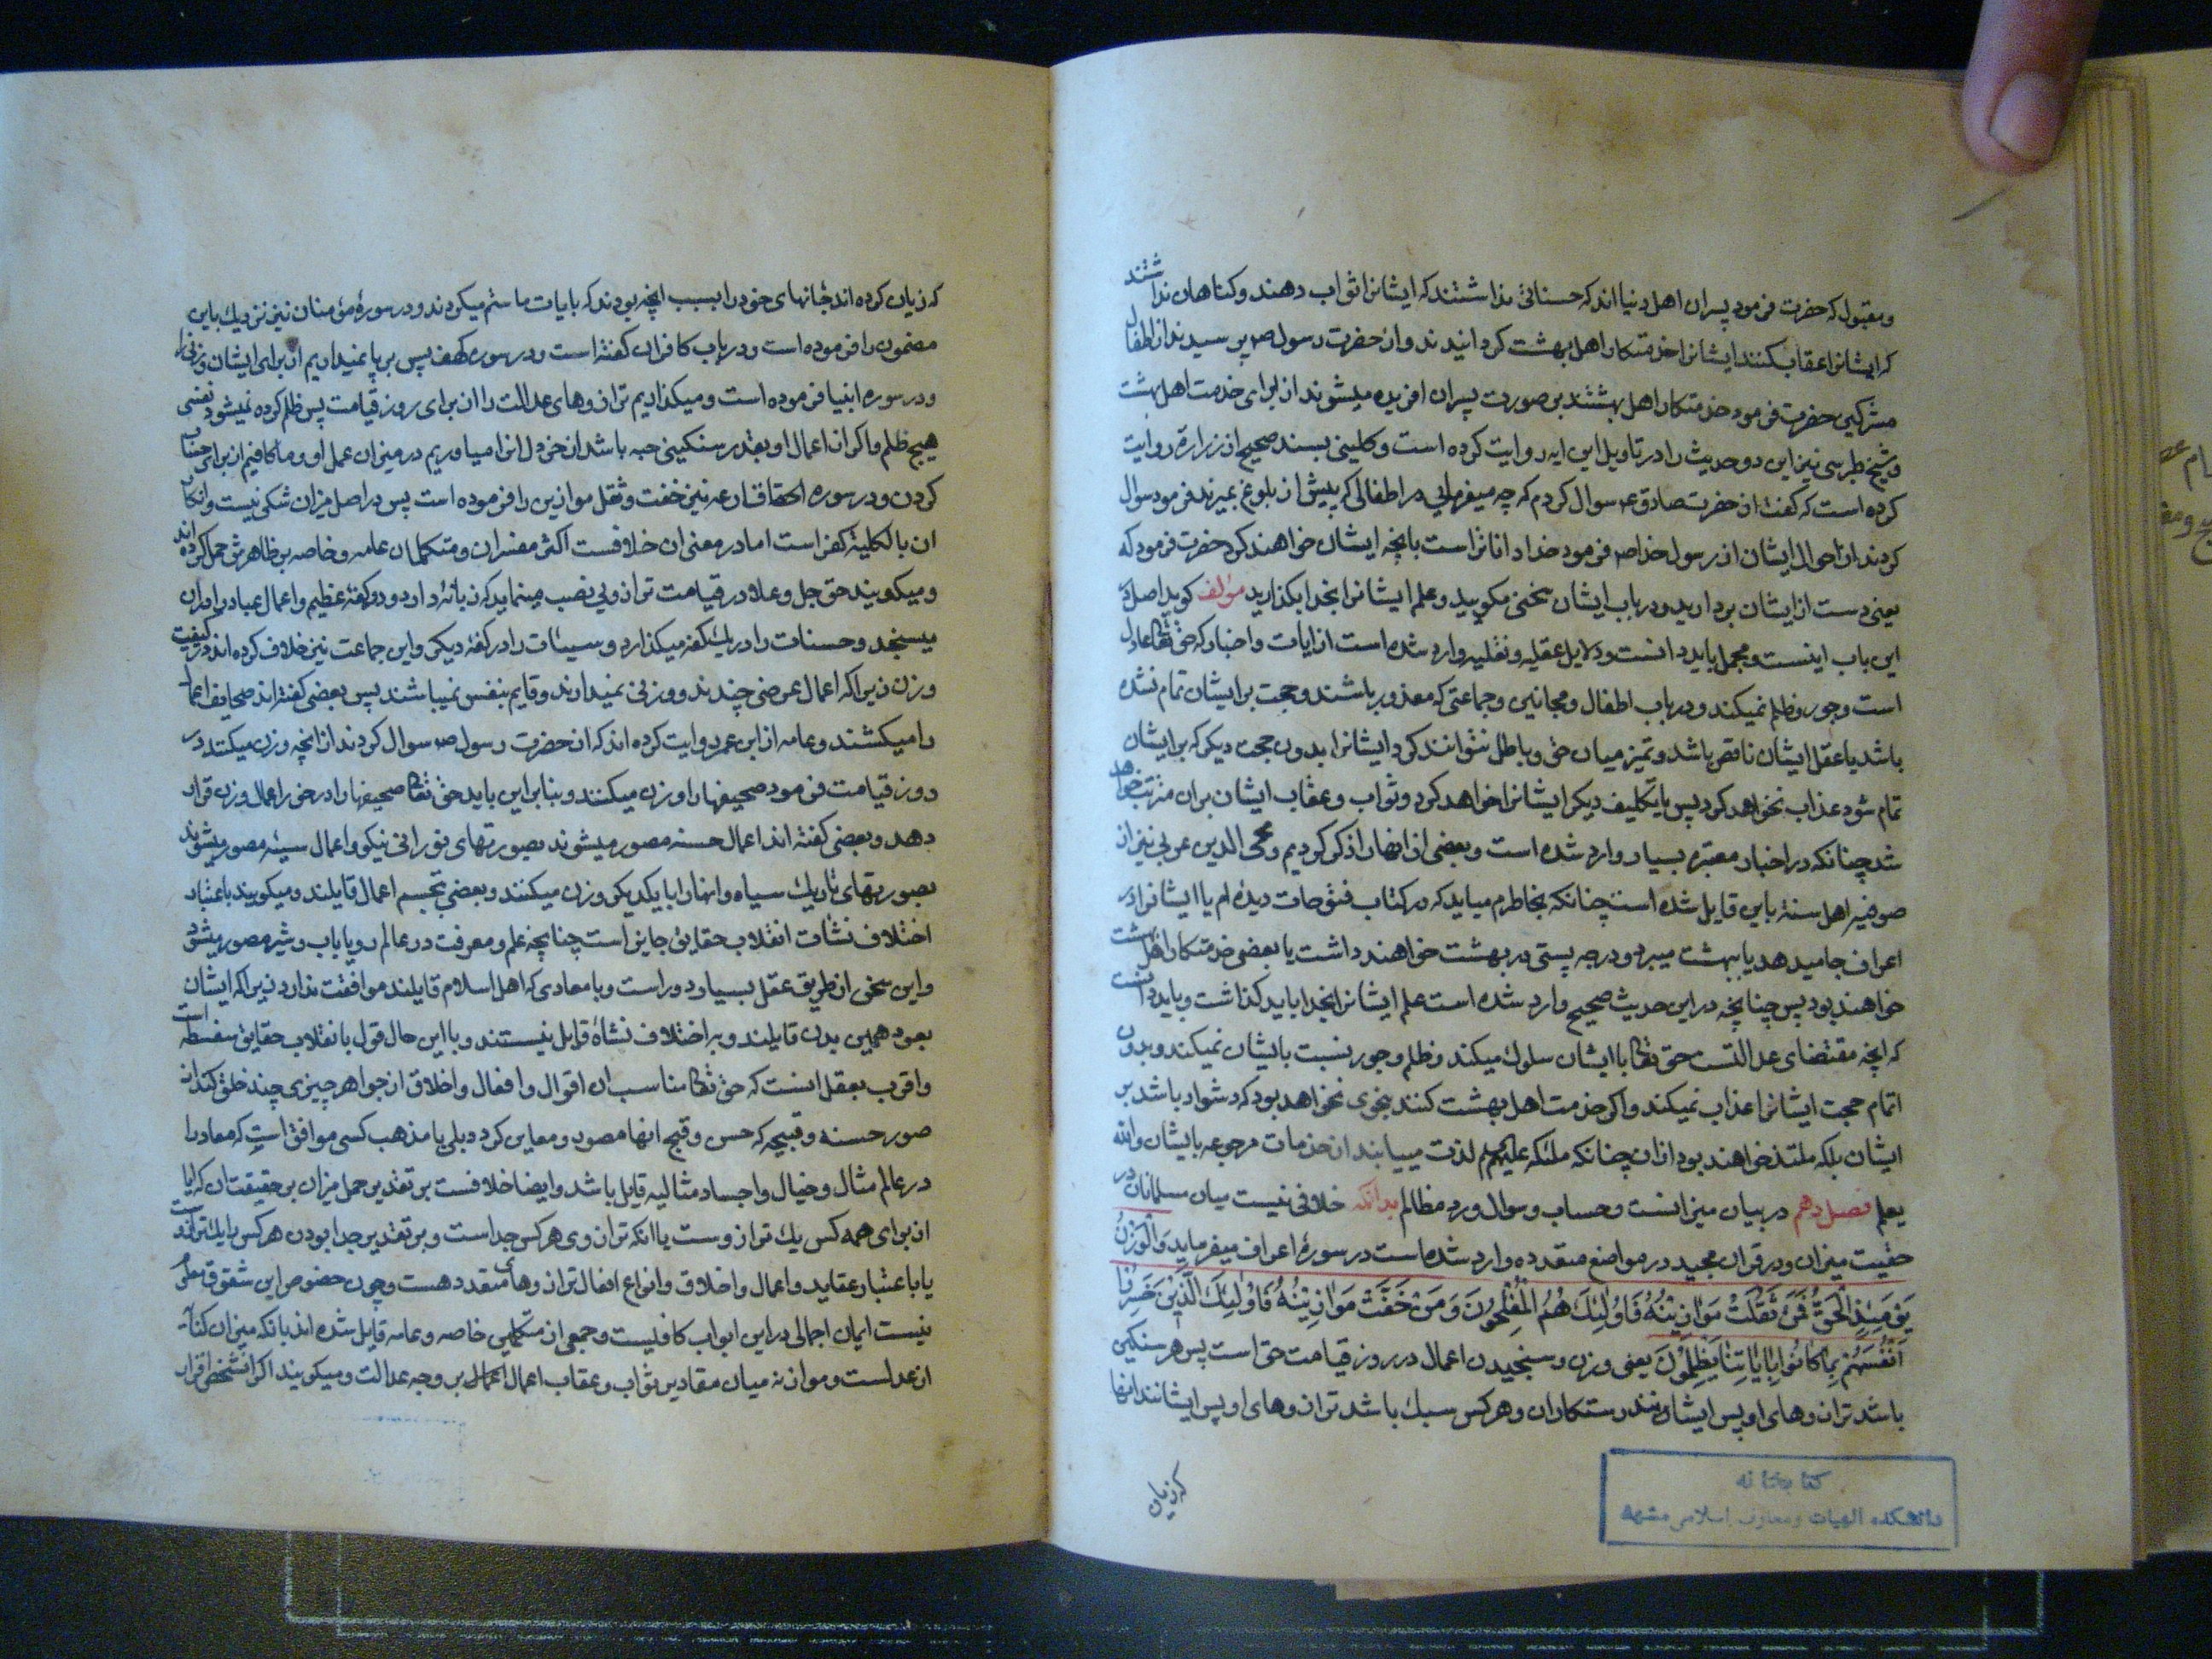 و مقبول که حضرت فرمود پسران اهل دنیا اند که حسناتی نداشتند که ایشانرا ثواب دهند و کناهان نداشتند
که ایشانرا عقاب بکنند ایشانرا خدمتکار اهل بهشت کردانیدند و از حضرت رسول ص پرسیدند از اطفال
مشرکین حضرت فرمود خدمتکار اهل بهشتند بر صورت پسران افریده میشوند از برای خدمت اهل بهشت
و شیخ طبرسی نیز این دو حدیث را در تاویل این ایه روایت کرده است و کلینی بسند صحیح از زراره روایت
کرده است که کفت از حضرت صادق ع سوال کردم که چه میفرمایی در اطفالی که پیش از بلوغ بمیرند فرمود سوال
کردند از احوال ایشان از رسول خدا ص فرمود خدا داناتر است بانچه ایشان خواهند کرد حضرت فرمود که
یعنی دست از ایشان بردارید و در باب ایشان سخنی مکویید و علم ایشانرا بخدا بکذارید مولف کوید اصل در
این باب اینست و مجمل باید دانست و دلایل عقلیه و نقلیه وارد شده است از ایات و اخبار که حق تعالی عادل
است و جور و ظلم نمیکند و در باب اطفال و مجانین و جماعتی که معذور باشند و حجت بر ایشان تمام نشده
باشد یا عقل ایشان ناقص باشد و تمیز میان حق و باطل نتوانند کرد ایشانرا بدون حجت دیکر که بر ایشان
تمام شود عذاب نخواهد کرد پس یا تکلیف دیکر ایشانرا خواهد کرد و ثواب و عقاب ایشان بران مترتب خواهد
شد چنانکه در اخبار معتبره بسیار وارد شده است و بعضی از انهارا ذکر کردیم و محی الدین عربی نیز از
صوفیه اهل سنة باین قایل شده است چنانکه بخاطرم میاید که در کتاب فتوحات دیده ام یا ایشانرا در
اعراف جا میدهد یا ببهشت میبرد و درجه پستی در بهشت خواهند داشت یا بعضی خدمتکار اهل بهشت
خواهند بود پس چنانچه در این حدیث صحیح وارد شده است علم ایشانرا بخدا باید کذاشت و باید دانست
که انچه مقتضای عدالتست حق تعالی با ایشان سلوک میکند و ظلم و جور نسبت بایشان نمیکند و بدون
اتمام حجت ایشانرا عذاب نمیکند و اکر خدمت اهل بهشت کنند بنحوی نخواهد بود که دشوار باشد بر
ایشان بلکه ملتذ خواهند بود ازان چنانکه ملئکه علیهم السلم لذت مییابند از خدمات مرجوعه بایشان والله
یعلم فصل دهم در بیان میزانست و حساب و سوال و رد مظالم بدانکه خلافی نیست میان مسلمانان در
حقیت میزان و در قران مجید در مواضع متعدده وارد شده است در سورهٔ اعراف میفرماید وَالْوَزْنُ
یَوْمَئِذٍ الْحَقُّ فَمَنْ ثَقُلَتْ مَوَازِینُهُ فَاُولٰئِكَ هُمُ الْمُفْلِحُونَ وَمَنْ خَفَّتْ مَوَازِینُهُ فَاُولٰئِكَ الَّذِینَ خَسِرُوا
اَنْفُسَهُمْ بِمَا كَانُوا بِاٰیَاتِنَا یَظْلِمُونَ یعنی وزن و سنجیدن اعمال در روز قیامت حق است پس هر سنکین
باشد ترازوهای او پس ایشان رستکاران و هر کس سبك باشد ترازوهای او پس ایشانند انها
که زیان
کتابخانه
دانشکده الهیات و معارف اسلامی مشهد
که زیان کرده اند جانهای خود را بسبب انچه بودند که بایات ما ستم میکردند و در سورهٔ مؤمنان نیز نزدیك باین
مضمون را فرموده است و در باب کافران کفته است و در سوره کهف پس بر پا نمیداریم از برای ایشان وزنی را
و در سوره انبیا فرموده است و میکذاریم ترازوهای عدالت را از برای روز قیامت پس ظلم کرده نمیشود نفسی
هیچ ظلم و اکر از اعمال او بقدر سنکینی حبه باشد از خردل انرا میاوریم در میزان عمل او و ما کافیم از برای حساب
کردن و در سوره القارعه نیز خفت و ثقل موازین را فرموده است پس در اصل میزان شکی نیست و انکار
ان بالکلیه کفر است اما در معنی ان خلافست اکثر مفسران و متکلمان عامه و خاصه بر ظاهرش حمل کرده اند
و میکویند حق جل و علا در قیامت ترازویی نصب مینماید که زبانه دارد و دو کفهٔ عظیم و اعمال عباد را بران
میسنجد و حسنات را در یك کفه میکذارد و سیئات را در کفهٔ دیکر و این جماعت نیز خلاف کرده اند در کیفیت
وزن زیرا که اعمال عرضی چندند و وزنی نمیدارند و قایم بنفس نمیباشند پس بعضی کفته اند صحایف اعمال
را میکشند و عامه از ابن عمر روایت کرده اند که از حضرت رسول ص سوال کردند از انچه وزن میکنند در
روز قیامت فرمود صحیفها را وزن میکنند و بنابراین باید حق تعالی صحیفها را در خور اعمال وزن قرار
دهد و بعضی کفته اند اعمال حسنه مصور میشوند بصورتهای نورانی نیکو و اعمال سیئه مصور میشوند
بصورتهای تاریك سیاه و انها را با یکدیکر وزن میکنند و بعضی بتجسم اعمال قایلند و میکویند باعتبار
اختلاف نشات انقلاب حقایق جایز است چنانچه علم و معرفت در عالم رویا باب و شیر مصور میشود
و این سخن از طریق عقل بسیار دور است و با معادی که اهل اسلام قایلند موافقت ندارد زیرا که ایشان
بعود همین بدن قایلند و بر اختلاف نشاة قایل نیستند و با این حال قول بانقلاب حقایق سفسطه است
و اقرب بعقل انست که حق تعالی مناسب ان اقوال و افعال و اخلاق از جواهر چیزی چند خلق کند از
صور حسنه و قبیحه که حسن و قبح انها مصور و معاین کردد بلی با مذهب کسی موافق است که معاد را
در عالم مثال و خیال و اجساد مثالیه قایل باشد و ایضا خلافست بر تقدیر حمل میزان بر حقیقت ان که ایا
از برای همه کس یك ترازوست یا انکه ترازوی هر کس جداست و بر تقدیر جدا بودن هر کس را یك ترازوست
یا باعتبار عقاید و اعمال و اخلاق و انواع افعال ترازوهای متعدد هست و چون خصوص این شقوق معلوم
نیست ایمان اجمالی در این ابواب کافیست و جمعی از متکلمین خاصه و عامه قایل شده اند بانکه میزان کنایه
از عدلست و موازنه میان مقادیر ثواب و عقاب اعمال بر وجه عدالت و میکویند اکر انشخص اقرار